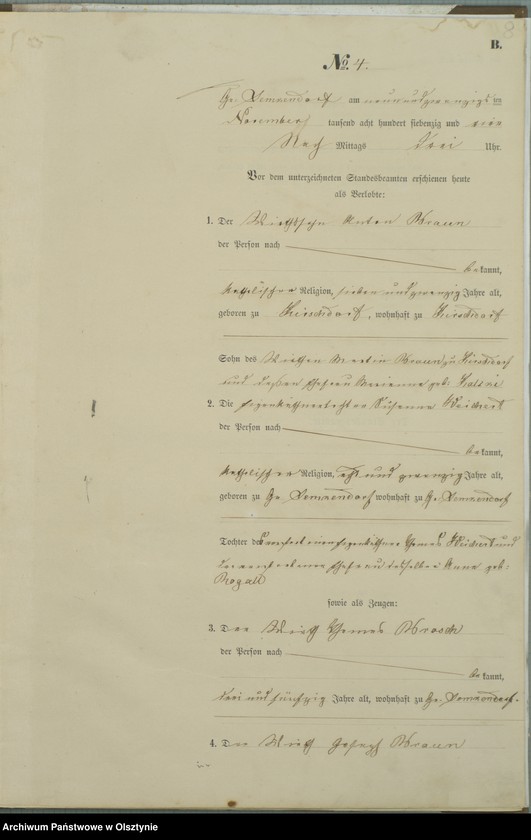 B.
No. 4.
Gr. Lemkendorf am neun und zwanzigsten
November tausend acht hundert siebenzig und vier
Nach Mittags drei Uhr.
Vor dem unterzeichneten Standesbeamten erschienen heute
als Verlobte:
1. Der Wirthssohn Anton Braun
der Person nach
bekannt,
katholischer Religion, sieben und zwanzig Jahre alt,
geboren zu , wohnhaft zu
Sohn des Wirthen Martin Braun zu
und dessen Ehefrau Marianna geb:
2. Die Susanna Weichert
der Person nach
bekannt,
katholischer Religion, acht und zwanzig Jahre alt,
geboren zu Gr. Lemkendorf wohnhaft zu Gr. Lemkendorf
Tochter des Weichert und
Ehefrau desselben Anna geb:
Rogall
sowie als Zeugen:
3. Der Wirth Thomas Brosch
der Person nach
bekannt,
drei und fünfzig Jahre alt, wohnhaft zu Gr. Lemkendorf.
4. Der Wirth Joseph Braun
Archiwum Państwowe w Olsztynie